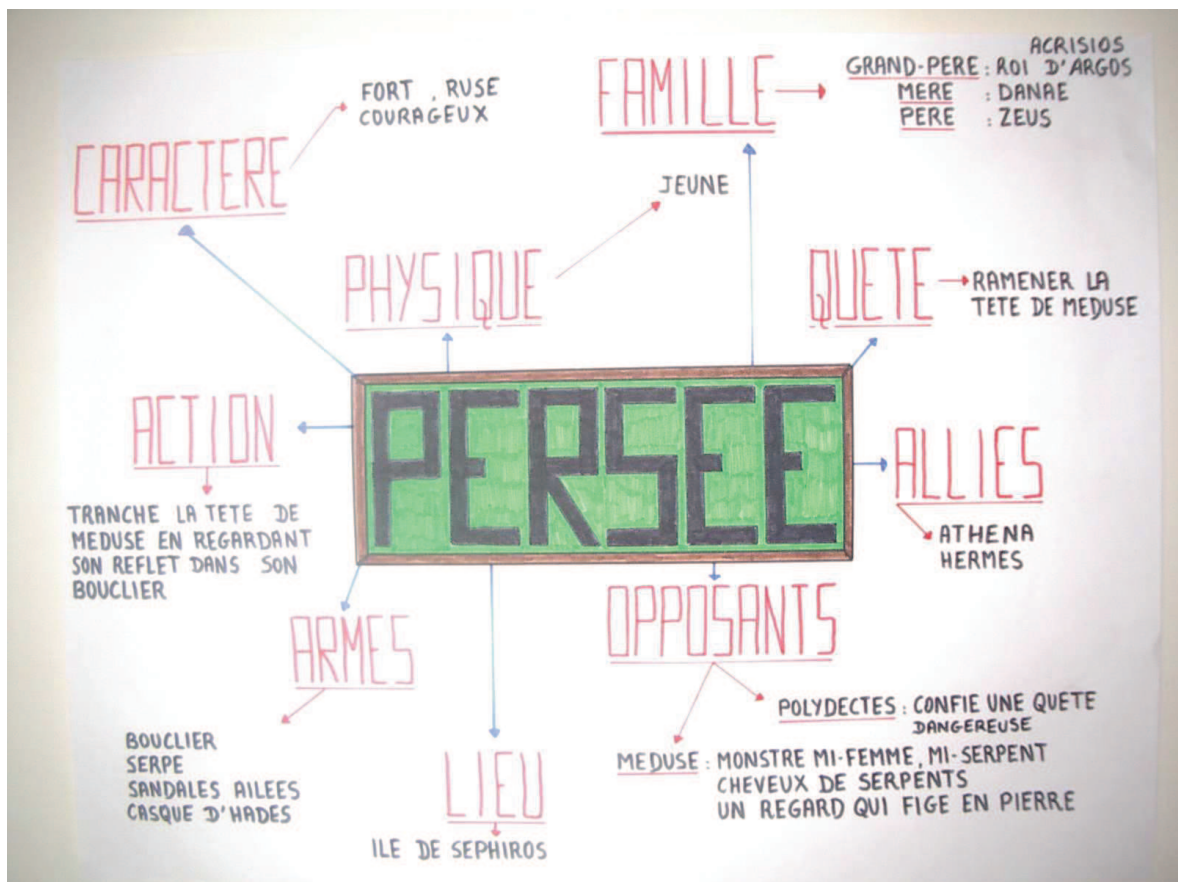 CARACTERE
FORT , RUSE
COURAGEUX
FAMILLE
ACRISIOS
GRAND-PERE : ROI D'ARGOS
MERE : DANAE
PERE : ZEUS
PHYSIQUE
JEUNE
QUETE
RAMENER LA
TETE DE MEDUSE
PERSEE
ACTION
TRANCHE LA TETE DE
MEDUSE EN REGARDANT
SON REFLET DANS SON
BOUCLIER
ALLIES
ATHENA
HERMES
ARMES
BOUCLIER
SERPE
SANDALES AILEES
CASQUE D'HADES
LIEU
ILE DE SEPHIROS
OPPOSANTS
POLYDECTES : CONFIE UNE QUETE
DANGEREUSE
MEDUSE : MONSTRE MI-FEMME, MI-SERPENT
CHEVEUX DE SERPENTS
UN REGARD QUI FIGE EN PIERRE